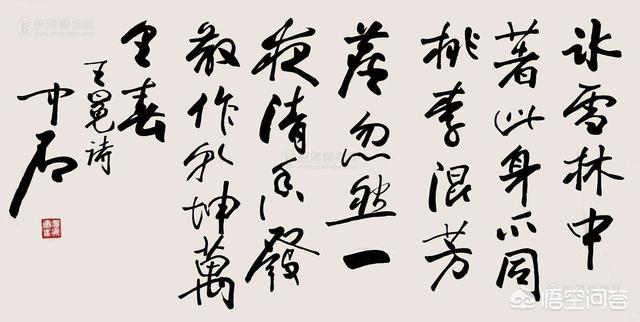 冰雪林中
著此身不同
桃李混芳
塵忽然一
夜清香發
散作乾坤萬
里春
王冕詩
中石
悟空问答